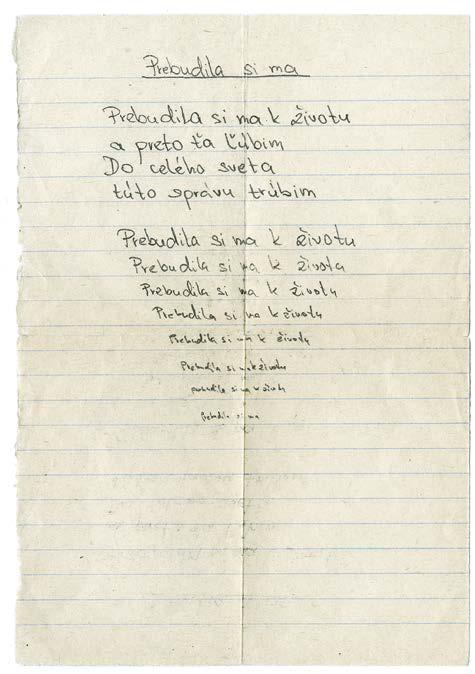 Prebudila si ma
Prebudila si ma k životu
a preto ťa ľúbim
Do celého sveta
túto správu trúbim
Prebudila si ma k životu
Prebudila si ma k životu
Prebudila si ma k životu
Prebudila si ma k životu
Prebudila si ma k životu
Prebudila si ma k životu
prebudila si ma k životu
Prebudila si ma